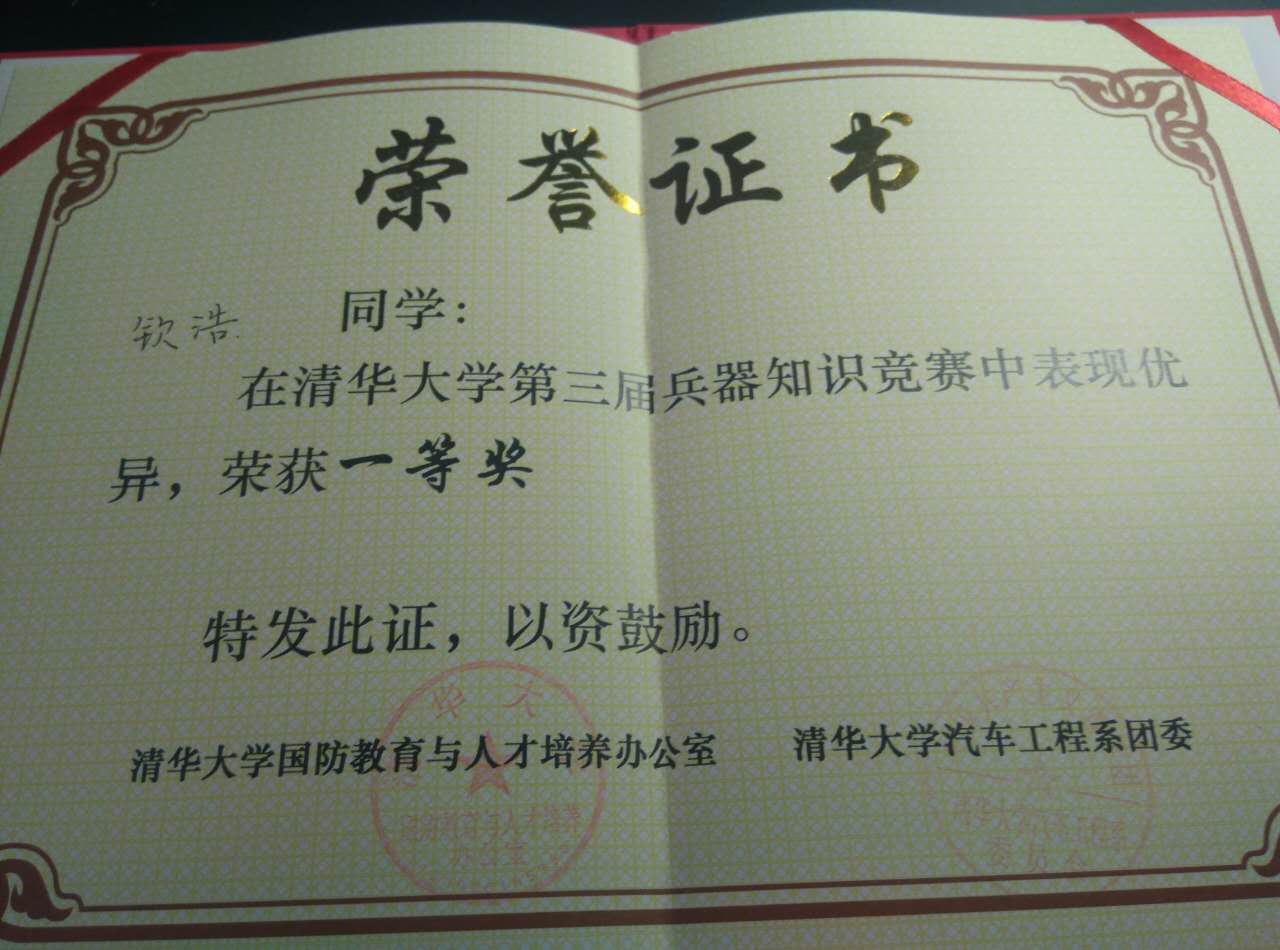 荣誉证书
钦浩 同学：
在清华大学第三届兵器知识竞赛中表现优
异，荣获一等奖
特发此证，以资鼓励。
清华大学国防教育与人才培养办公室 清华大学汽车工程系团委